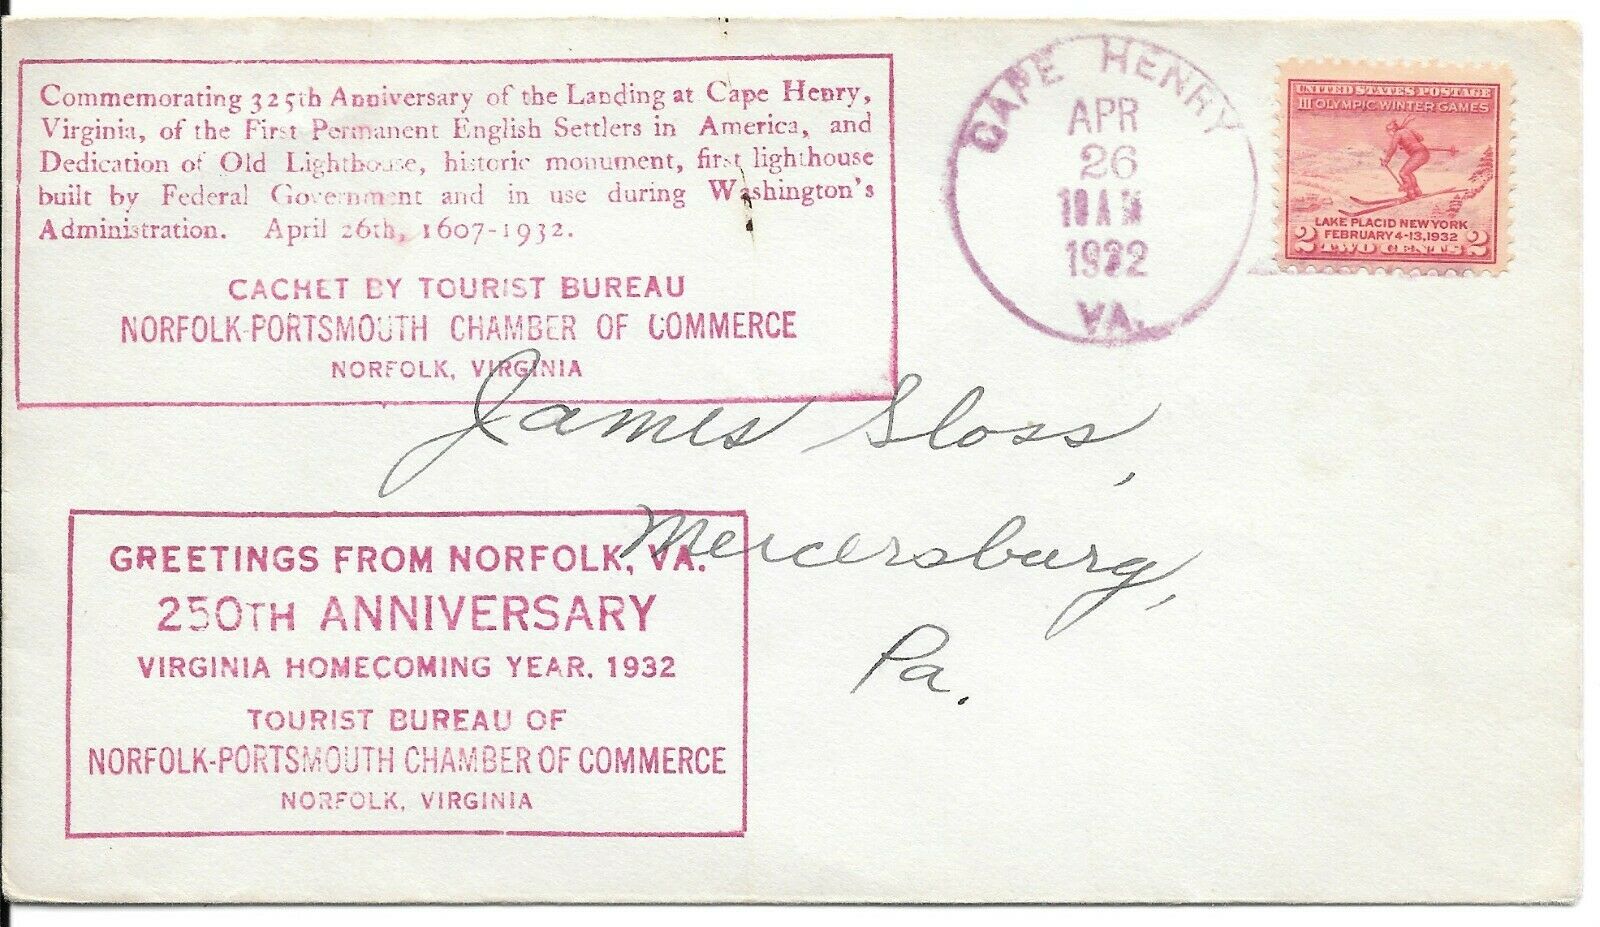 Commemorating 325th Anniversary of the Landing at Cape Henry,
Virginia, of the First Permanent English Settlers in America, and
Dedication of Old Lighthouse, historic monument, first lighthouse
built by Federal Government and in use during Washington's
Administration. April 26th, 1607-1932.
CACHET BY TOURIST BUREAU
NORFOLK-PORTSMOUTH CHAMBER OF COMMERCE
NORFOLK, VIRGINIA
CAPE HENRY
APR
26
10 AM
1932
VA.
UNITED STATES POSTAGE
III OLYMPIC WINTER GAMES
LAKE PLACID NEW YORK
FEBRUARY 4-13, 1932
2 TWO CENTS 2
James Sloss,
Mercersburg,
Pa.
GREETINGS FROM NORFOLK, VA.
250TH ANNIVERSARY
VIRGINIA HOMECOMING YEAR. 1932
TOURIST BUREAU OF
NORFOLK-PORTSMOUTH CHAMBER OF COMMERCE
NORFOLK, VIRGINIA